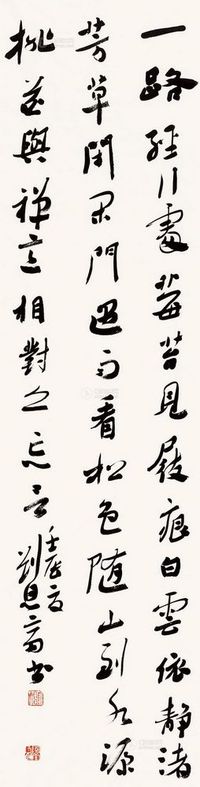 一路經行處莓苔見屐痕白雲依靜渚
芳草閉閑門過雨看松色隨山到水源
桃花與禪意相對亦忘言
壬辰夏
劉恩書